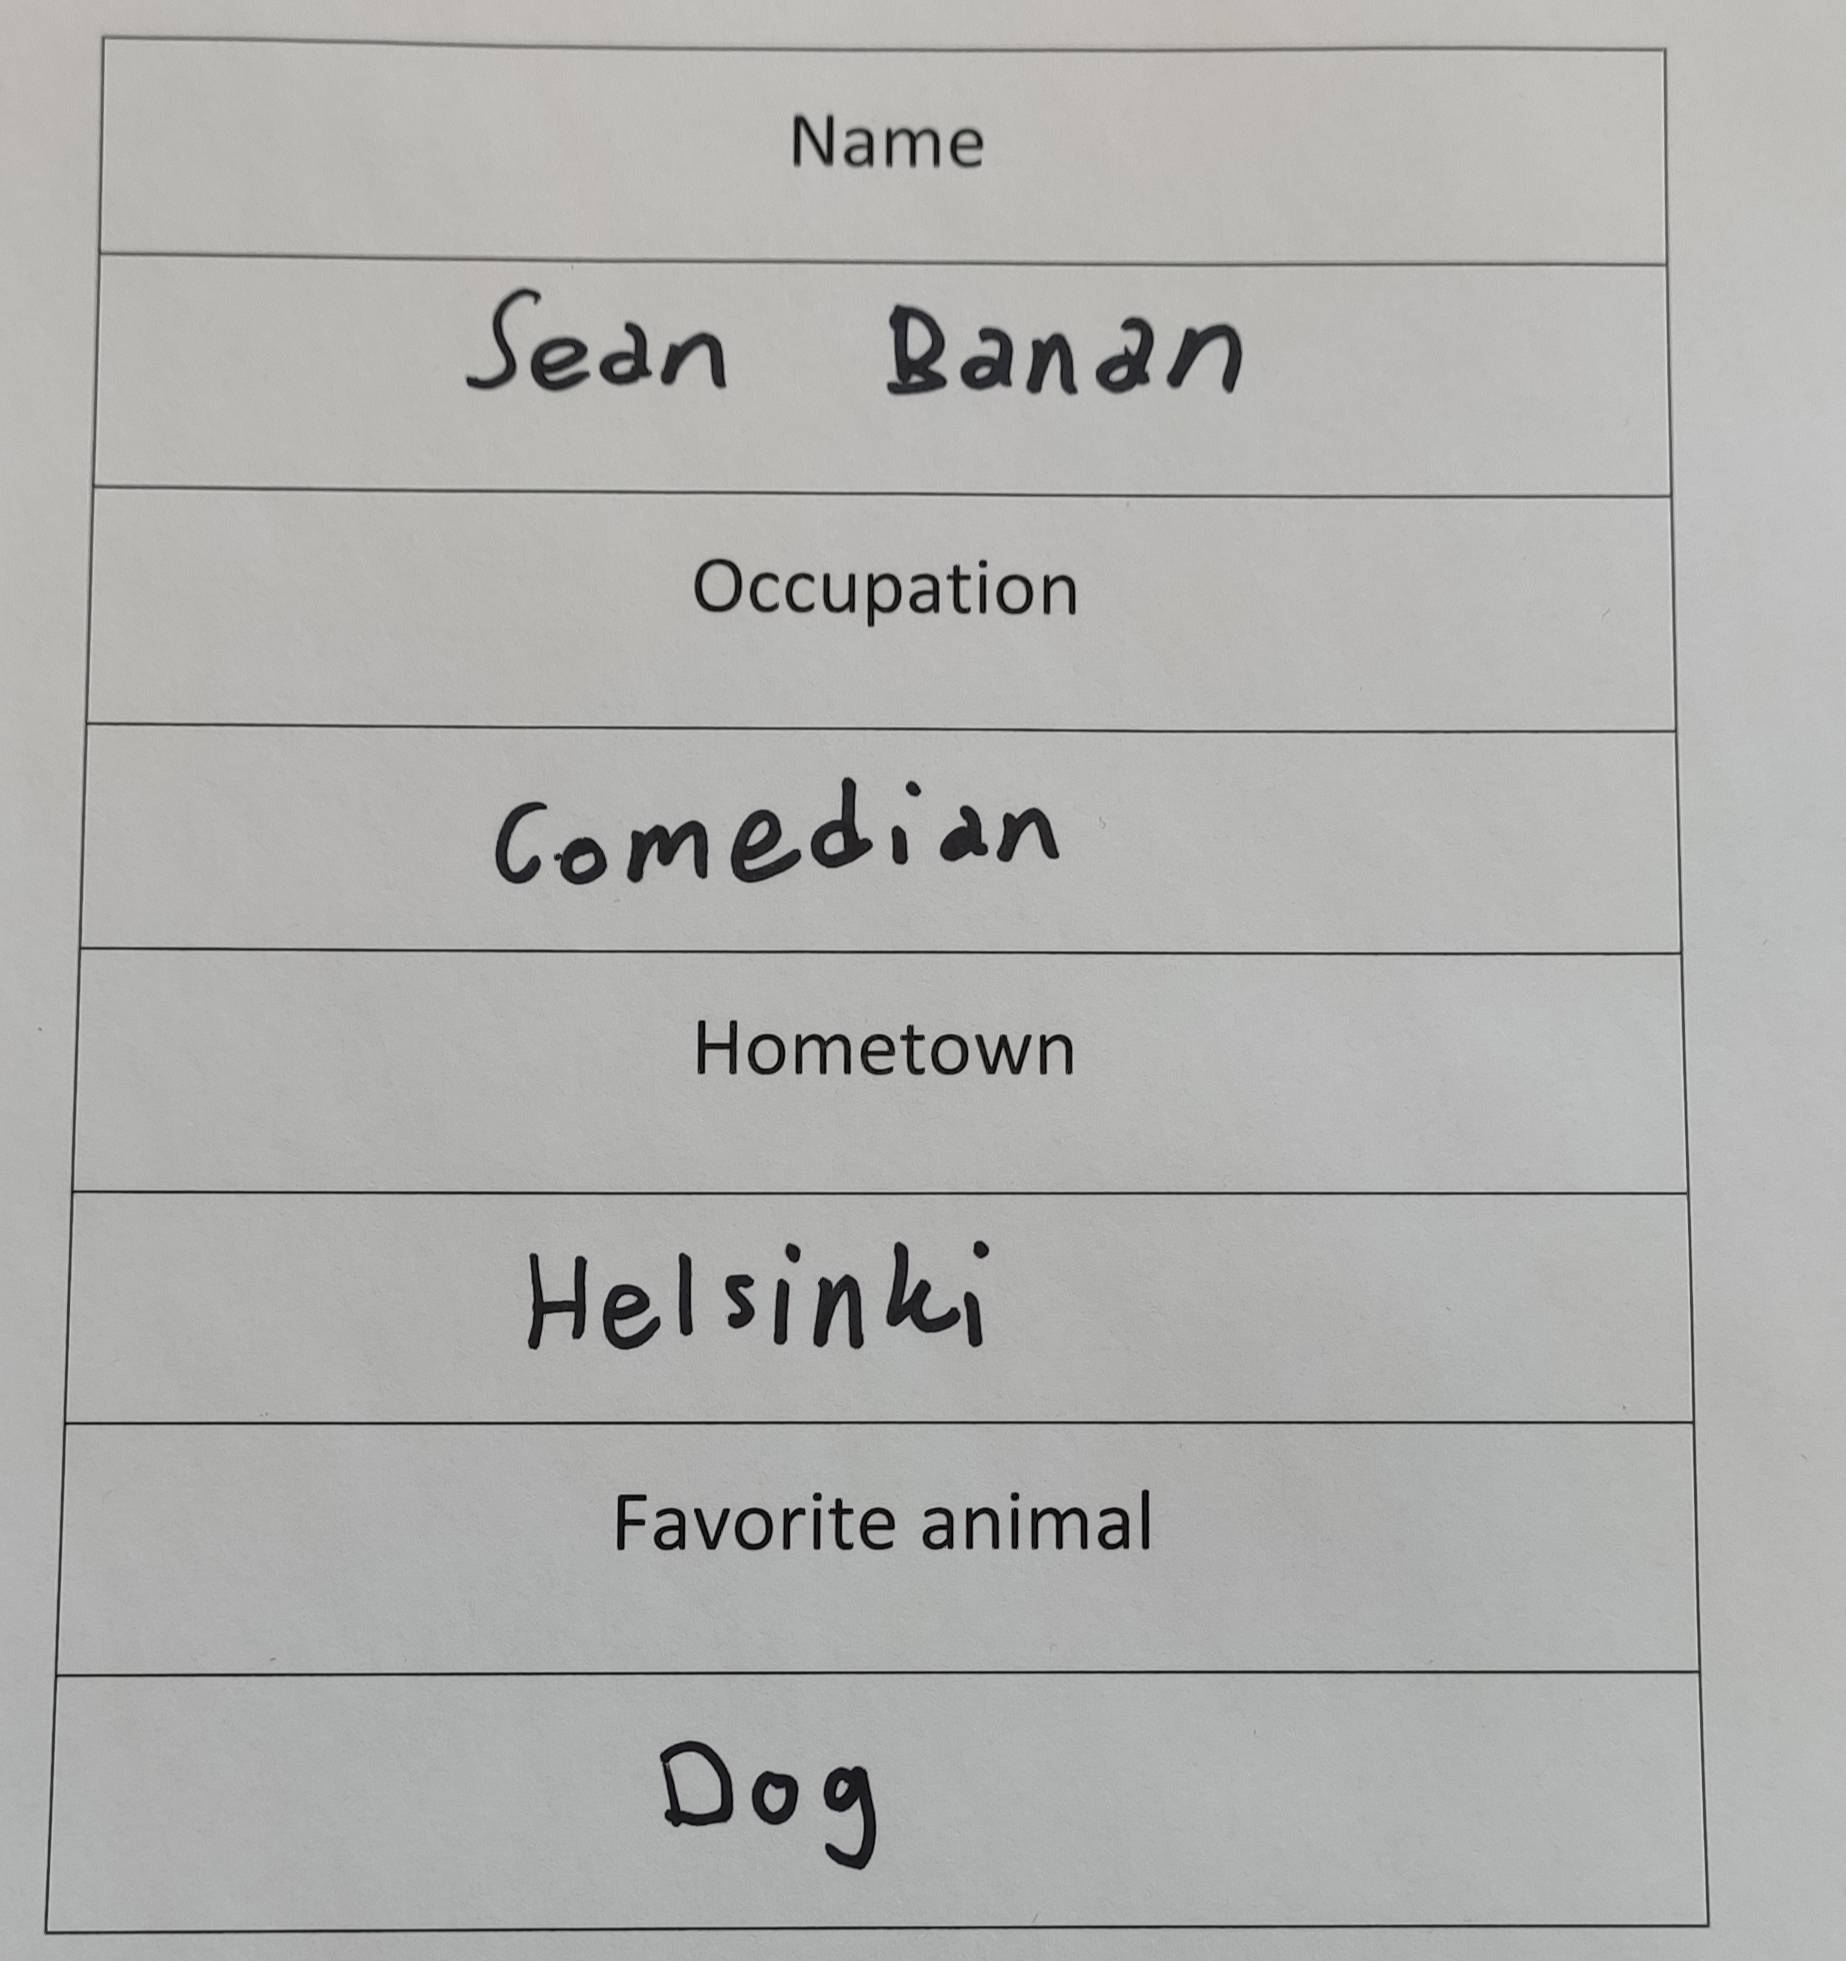 Name
Sean Banan
Occupation
Comedian
Hometown
Helsinki
Favorite animal
Dog